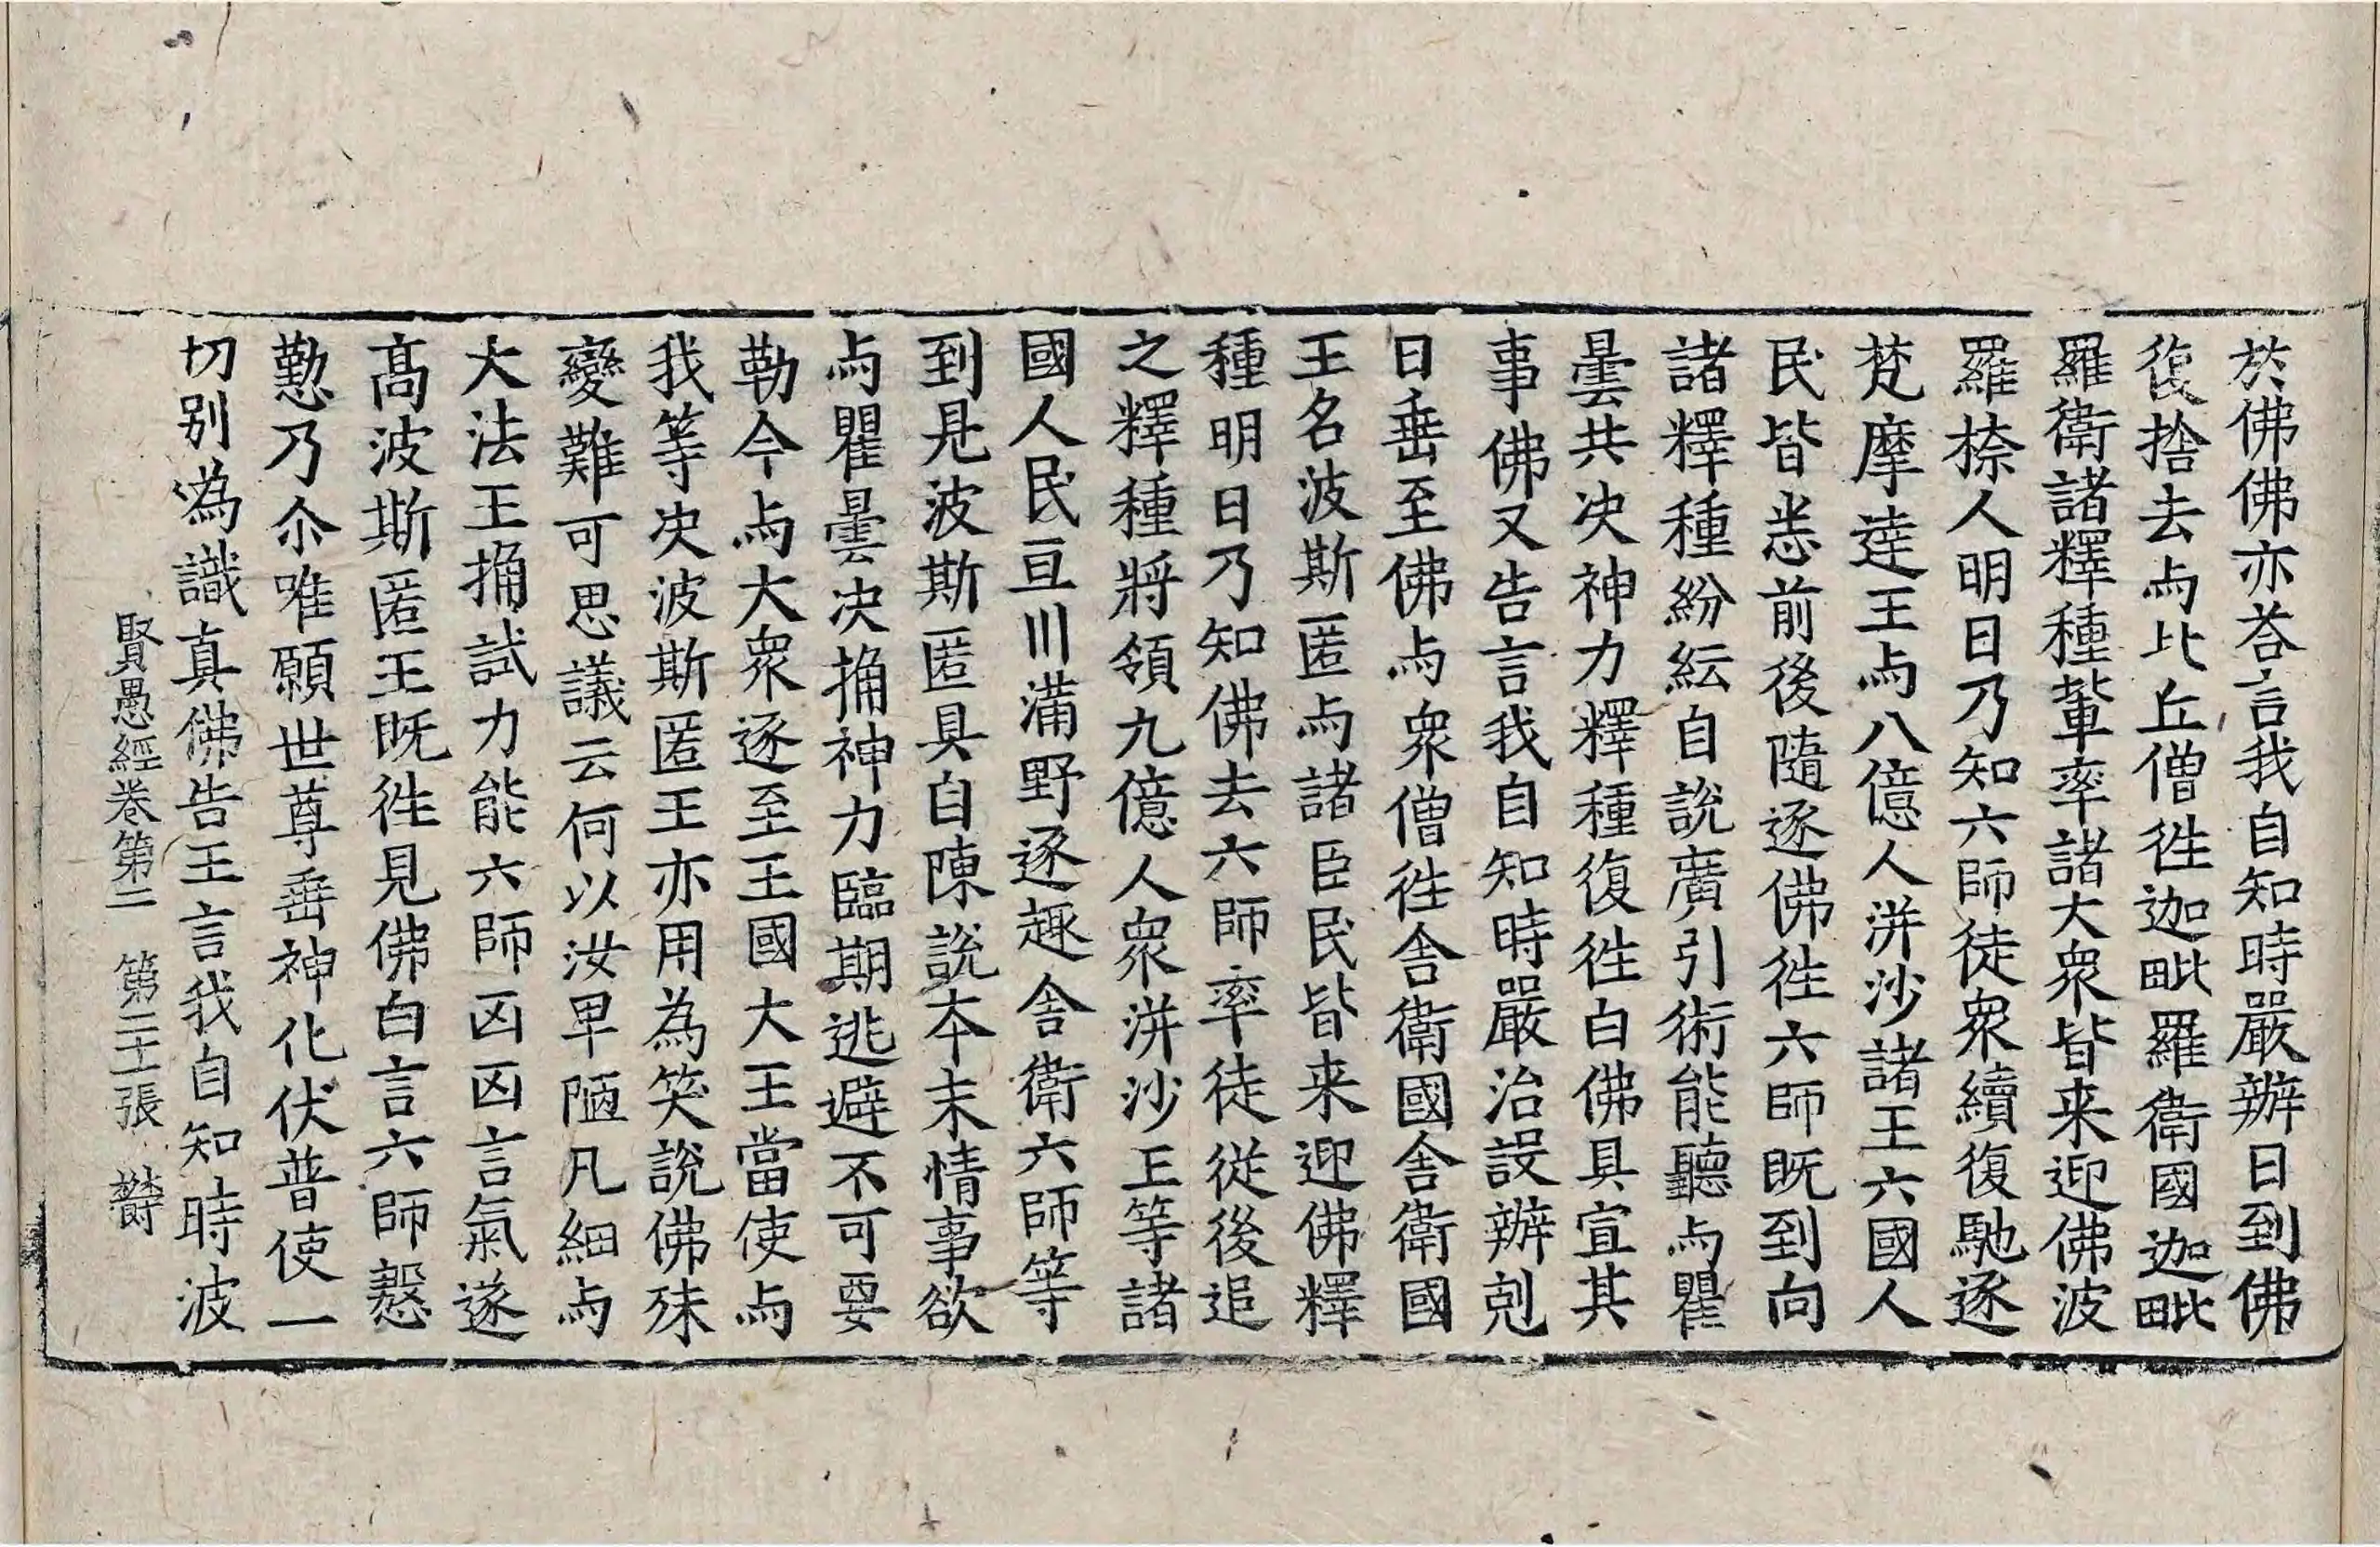 於佛佛亦荅言我自知時嚴辦日到佛
復捨去与比丘僧徃迦毗羅衛國迦毗
羅衛諸釋種輩率諸大衆皆来迎佛波
羅捺人明日乃知六師徒衆續復馳逐
梵摩達王与八億人洴沙諸王六國人
民皆悉前後隨逐佛徃六師既到向
諸釋種紛紜自說廣引術能聽与瞿
曇共决神力釋種復徃白佛具宣其
事佛又告言我自知時嚴治設辦剋
日垂至佛与衆僧徃舍衛國舍衛國
王名波斯匿与諸臣民皆来迎佛釋
種明日乃知佛去六師率徒從後追
之釋種將領九億人衆洴沙王等諸
國人民亘川滿野逐趣舍衛六師等
到見波斯匿具自陳說夲末情事欲
与瞿曇决捔神力臨期逃避不可要
勒今与大衆逐至王國大王當使与
我等决波斯匿王亦用為笑說佛殊
變難可思議云何以汝卑陋凡細与
大法王捔試力能六師凶凶言氣遂
髙波斯匿王既徃見佛白言六師慇
懃乃尒唯願世尊垂神化伏普使一
切别偽識真佛告王言我自知時波
賢愚經卷第二　第二十張　欝